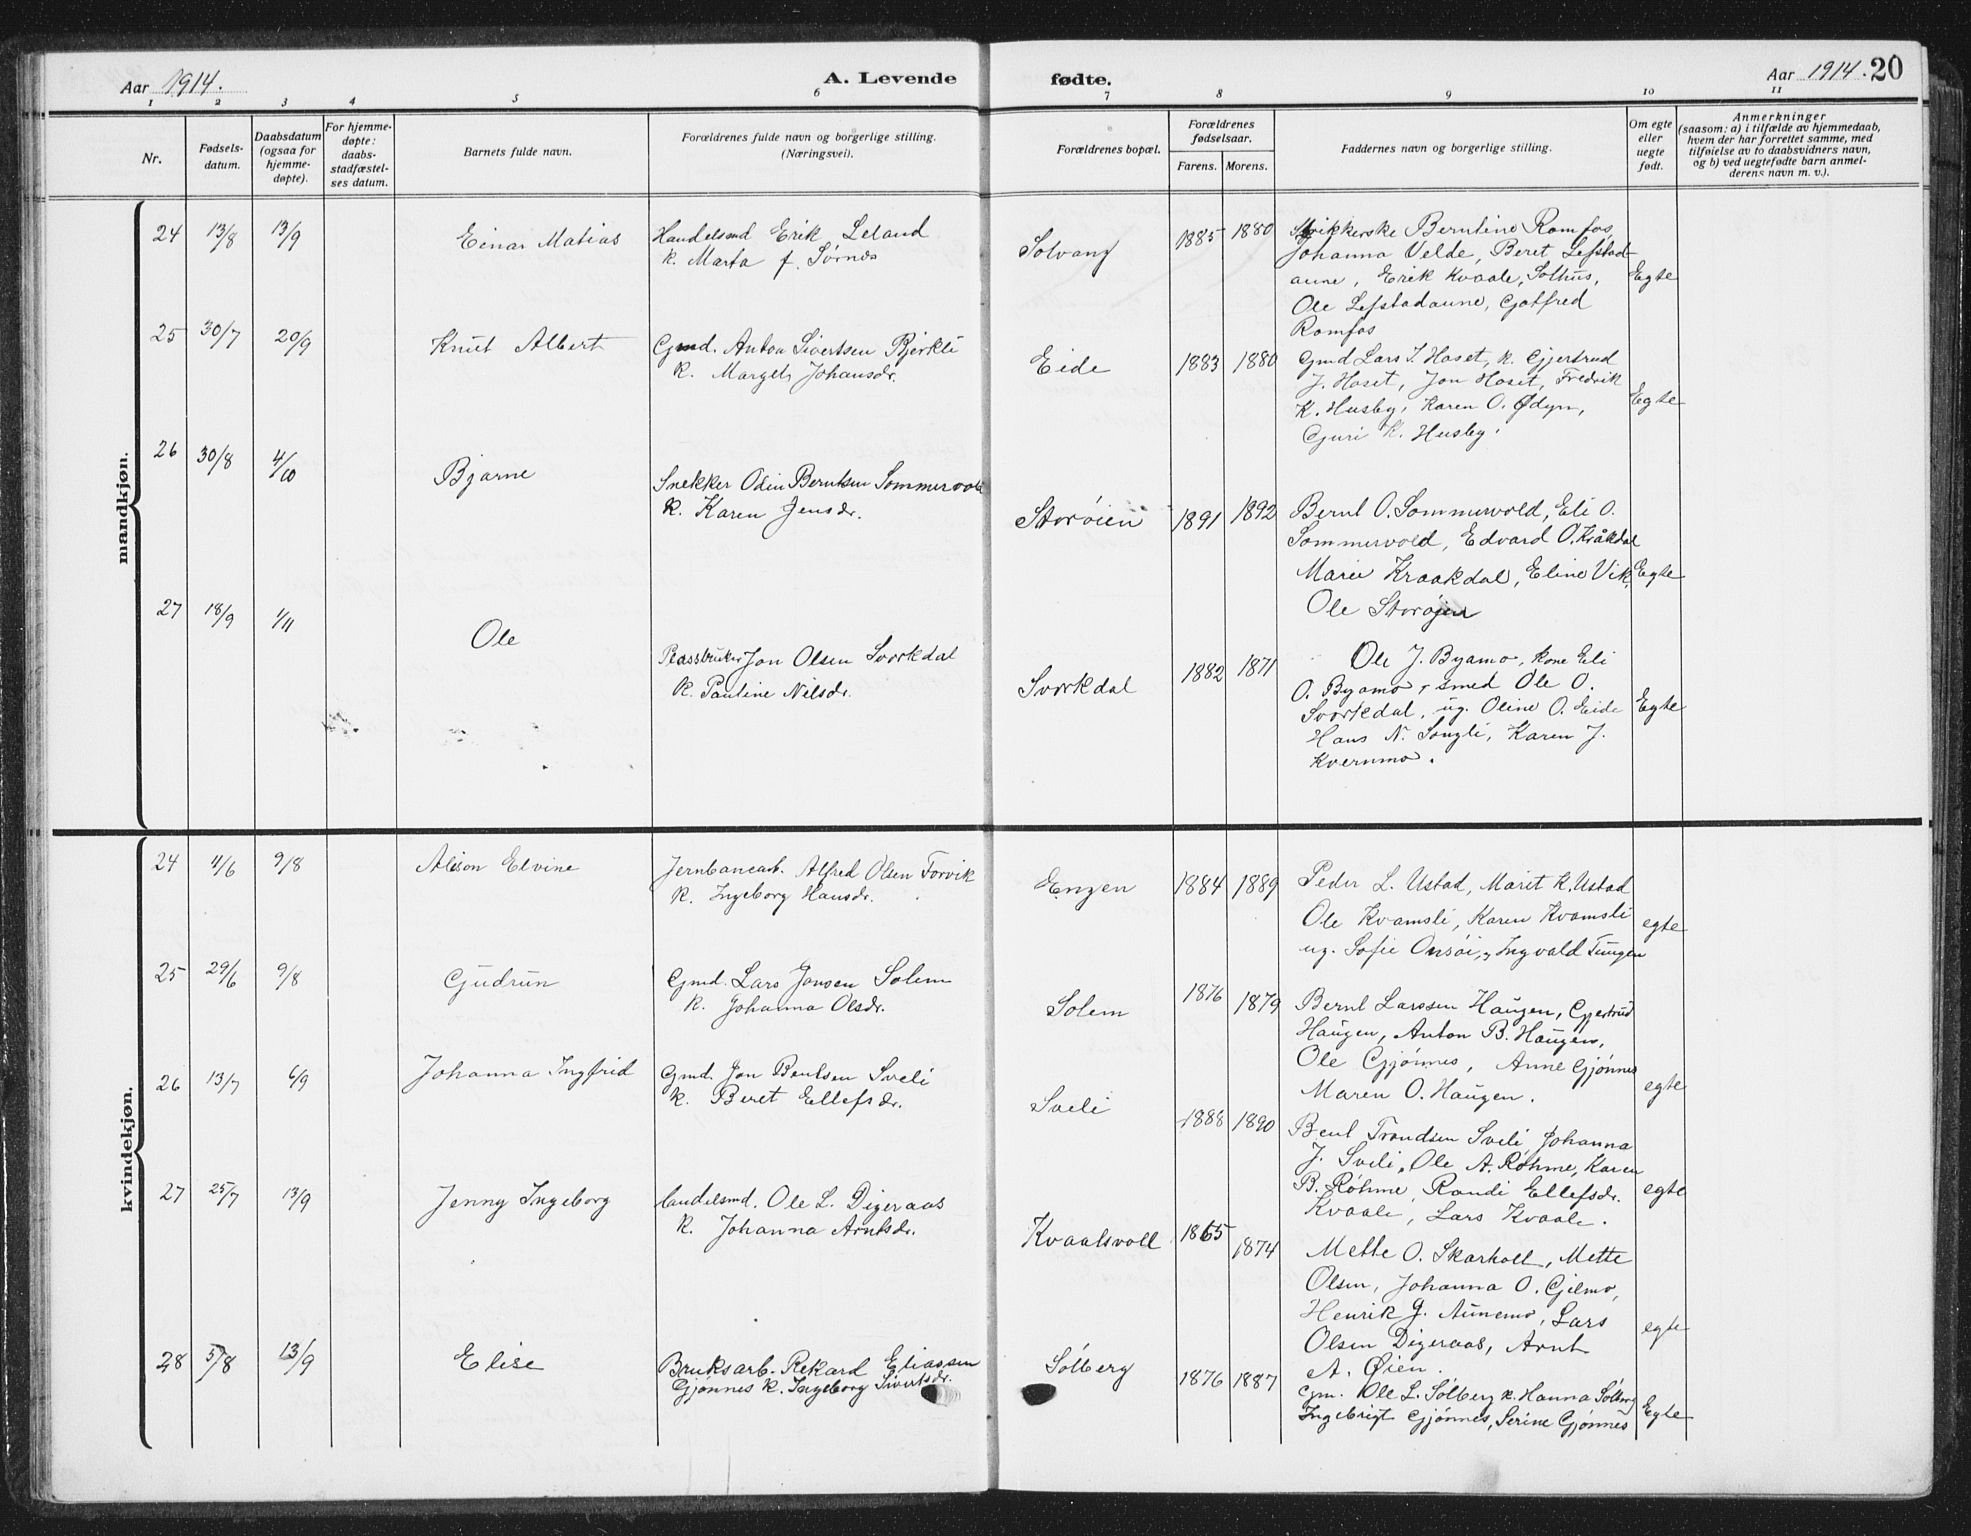 Aar 1914.
A. Levende
fødte.
Aar 1914. 20
1 2 3 4 5 6 7 8 9 10 11
Nr.
Fødsels-
datum.
Daabsdatum
(ogsaa for
hjemme-
døpte).
For hjemme-
døpte:
daabs-
stadfæstel-
ses datum.
Barnets fulde navn.
Forældrenes fulde navn og borgerlige stilling.
(Næringsvei).
Forældrenes bopæl.
Forældrenes
fødselsaar.
Farens. Morens.
Faddernes navn og borgerlige stilling.
Om egte
eller
uegte
født.
Anmerkninger
(saasom: a) i tilfælde av hjemmedaab,
hvem der har forrettet samme, med
tilføielse av to daabsvidners navn,
og b) ved uegtefødte barn anmel-
derens navn m. v.).
mandkjøn.
24 13/8 13/9 Einar Matias
Handelsmd Erik Leland
k. Marta f. Sørnes
Solvang 1885 1880
Berntine Romfos,
Johanna Velde, Beret Lefstad-
aune, Erik Kvaale, Solhus,
Ole Lefstadaune, Gotfred
Romfos
Egte
25 30/7 20/9 Knut Albert
Gmd. Anton Sivertsen Bjerkli
k. Margit Johansdr.
Eide 1883 1880
Gmd Lars J. Hoset, k. Gjertrud
J. Hoset, Jon Hoset, Fredrik
K. Husby, Karen O. Ødyn,
Guri K. Husby.
Egte
26 30/8 4/10 Bjarne
Snekker Odin Berntsen Sommervold
k. Karen Jensdr.
Storøien 1891 1892
Bernt O. Sommervold, Eli O.
Sommervold, Edvard O. Kråkdal
Maren Kraakdal, Eline Vik,
Ole Storøien
Egte
27 18/9 1/11 Ole
Plassbruker Jon Olsen Svorkdal
k. Pauline Nilsdr.
Svorkdal 1882 1871
Ole J. Byamo, kone Eli
O. Byamo, smed Ole O.
Svorkdal, ug. Oline O. Eide
Hans N. Songli, Karen J.
Kvernmo.
Egte
kvindekjøn.
24 4/6 9/8 Alison Elvine
Jernbanearb. Alfred Olsen Forvik
k. Ingeborg Hansdr.
Engen 1884 1889
Peder L. Ustad, Marit K. Ustad
Ole Kvamsli, Karen Kvamsli
ug. Sofie Onsøi, Ingvald Tungen
egte
25 29/6 9/8 Gudrun
Gmd. Lars Jonsen Solem
k. Johanna Olsdr.
Solem 1876 1879
Bernt Larssen Haugen, Gjertrud
Haugen, Anton B. Haugen,
Ole Gjønnes, Anne Gjønnes
Maren O. Haugen.
egte
26 13/7 6/9 Johanna Ingfrid
Gmd. Jon Bentsen Sveli
k. Beret Ellefsdr.
Sveli 1888 1890
Bent Trondsen Sveli Johanna
J. Sveli, Ole A. Røhme, Karen
B. Røhme, Randi Ellefsdr.
Kvaale, Lars Kvaale.
egte
27 25/7 13/9 Jenny Ingeborg
Handelsmd. Ole L. Digeraas
k. Johanna Arntsdr.
Kvaalsvoll 1865 1874
Mette O. Skarholt, Mette
Olsen, Johanna O. Gjelmo,
Henrik J. Aunemo, Lars
Olsen Digeraas, Arnt
A. Øien.
egte
28 5/8 13/9 Elise
Bruksarb. Rekard Eliassen
Gjønnes k. Ingeborg Sivertsdr.
Solberg 1876 1887
Gm. Ole L. Solberg k. Hanna Solberg
Ingebrigt Gjønnes, Serine Gjønnes
Egte